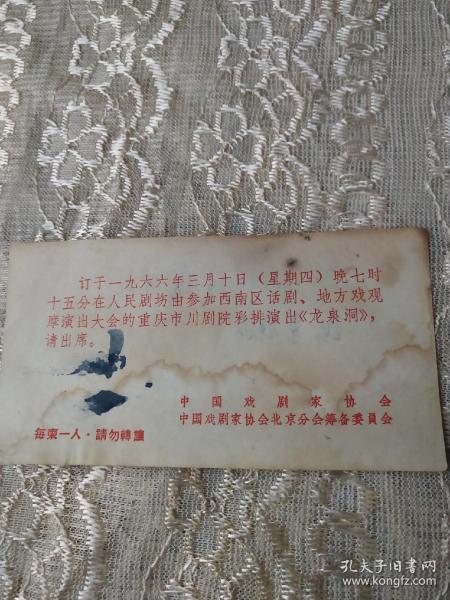 订于一九六六年三月十日（星期四）晚七时
十五分在人民剧坊由参加西南区话剧、地方戏观
摩演出大会的重庆市川剧院彩排演出《龙泉洞》，
请出席。
中国戏剧家协会
中国戏剧家协会北京分会筹备委員会
每柬一人·請勿轉讓
孔夫子旧书网
www.kongfz.com